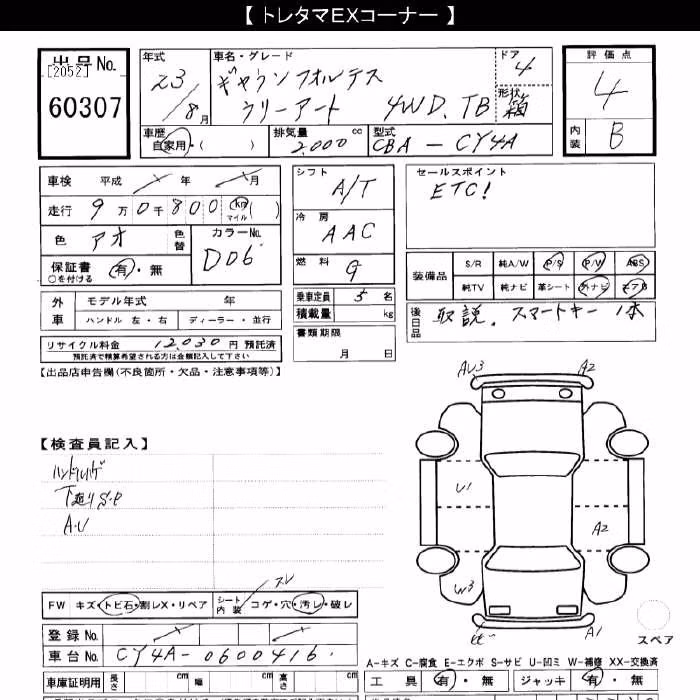 【 トレタマEXコーナー 】
出品No.
[2052]
60307
年式
23
/8月
車名・グレード
ギャラン フォルテス
ラリーアート 4WD. TB
ドア
4
形状
箱
評価点
4
内装
B
車歴
自家用・( )
排気量
2,000 cc
型式
CBA - CY4A
車検 平成 年 月
走行 9万0千800 km マイル ( )
色 アオ 色替
カラーNo.
D06
保証書 有・無
○を付ける
シフト
A/T
冷房
AAC
燃料
G
セールスポイント
ETC!
装備品
S/R 純A/W P/S P/W ABS
純TV 純ナビ 革シート 外ナビ エアB
外車
モデル年式 年
ハンドル 左・右 ディーラー・並行
乗車定員 5 名
積載量 kg
後日品
取説. スマートキー 1本
リサイクル料金 12,030 円 預託済
預託済で精算希望される方は金額記入して下さい
書類期限
月 日
【出品店申告欄(不良箇所・欠品・注意事項等)】
AU3 A2
【検査員記入】
ハンドルハゲ
下廻りS.P
A.U
U1
A2
W3
A1
スペア
FW キズ・トビ石・割レX・リペア
シート内装 コゲ・穴・汚レ・破レ
スレ
登録 No.
車台 No. CY4A-0600416.
A-キズ C-腐食 E-エクボ S-サビ U-凹ミ W-補修 XX-交換済
車庫証明用 長さ cm 幅 cm 高さ cm
工具 有・無 ジャッキ 有・無